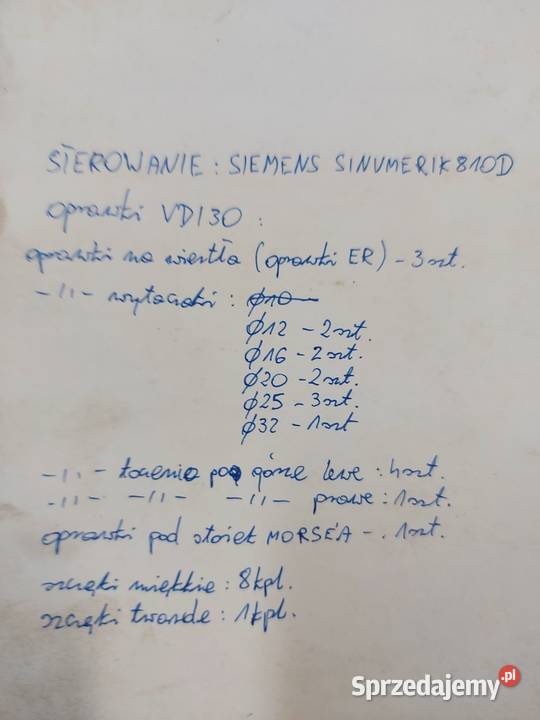 STEROWANIE : SIEMENS SINUMERIK 810D
oprawki VDI30 :
oprawki na wiertła (oprawki ER) - 3szt.
-//- wytaczaki : ϕ10
ϕ12 - 2szt.
ϕ16 - 2szt.
ϕ20 - 2szt.
ϕ25 - 3szt.
ϕ32 - 1szt
-//- toczenie pod górę lewe : 4szt.
-//- -//- -//- prawe : 1szt.
oprawki pod stożek MORSE'A - 1szt.
szczęki miękkie : 8kpl.
szczęki twarde : 1kpl.
Sprzedajemy.pl